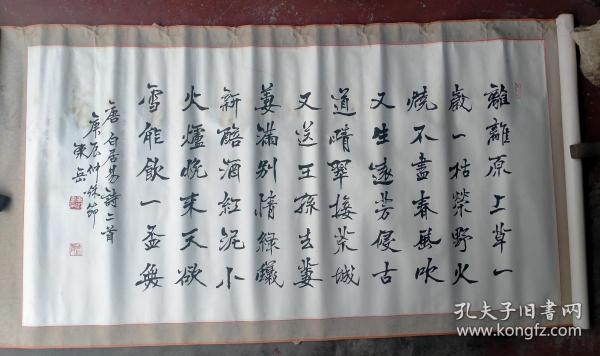 離離原上草一
歲一枯榮野火
燒不盡春風吹
又生遠芳侵古
道晴翠接荒城
又送王孫去萋
萋滿別情綠蟻
新醅酒紅泥小
火爐晚來天欲
雪能飲一盃無
唐白居易詩二首
庚辰仲秋節
東岳
孔夫子旧书网
www.kongfz.com